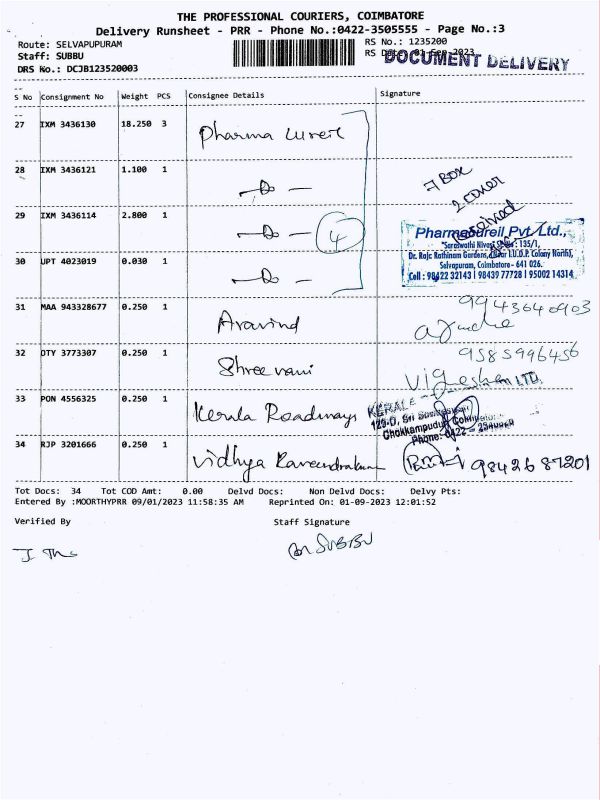 THE PROFESSIONAL COURIERS, COIMBATORE
Delivery Runsheet - PRR - Phone No.:0422-3505555 - Page No.:3
Route: SELVAPUPURAM
RS No.: 1235200
Staff: SUBBU
RS Date: 01-Sep-2023
DOCUMENT DELIVERY
DRS No.: DCJB123520003
S No Consignment No Weight PCS Consignee Details Signature
27 IXM 3436130 18.250 3 Pharma Cureil
28 IXM 3436121 1.100 1 — Do —
7 Box
2 cover
received
29 IXM 3436114 2.800 1 — Do — 4
PharmaCureil Pvt. Ltd.,
"Saraswathi Nivas", 135/1,
Dr. Raja Rathinam Gardens, (Near T.U.D.P. Colony North),
Selvapuram, Coimbatore- 641 026.
Cell : 98422 32143 | 98439 77728 | 95002 14314
30 UPT 4023019 0.030 1 — Do —
31 MAA 943328677 0.250 1 Aravind
9943640903
32 OTY 3773307 0.250 1 Shree vani
9585996456
33 PON 4556325 0.250 1 Kerala Roadways
KERALA LTD.
Chokkampudur, Coimbatore
Phone: 0422 -
34 RJP 3201666 0.250 1 Vidhya Raveendrakumar
9842687201
Tot Docs: 34 Tot COD Amt: 0.00 Delvd Docs: Non Delvd Docs: Delvy Pts:
Entered By :MOORTHYPRR 09/01/2023 11:58:35 AM Reprinted On: 01-09-2023 12:01:52
Verified By Staff Signature
SUBBU